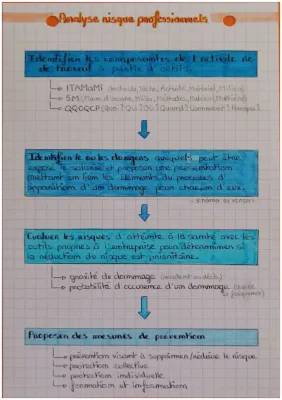 Analyse risque professionnels
Identifier les composantes de l'activité
de travail à partir d'outils
ITAMaMi (Individu, Tâche, Activité, Matériel, Milieu)
5M (Main d'oeuvre, Milieu, Méthodes, Matériel, Matières)
QQOQCP (Qui? Quoi? Où? Quand? Comment? Pourquoi?)
Identifier le ou les dangers auxquels peut être
exposé le salarié et proposer une présentation
mettant en lien les éléments du processus
d'apparition d'un dommage pour chacun d'eux.
Evaluer les risques d'atteinte à la santé avec les
outils propres à l'entreprise pour déterminer si
la réduction du risque est prioritaire.
gravité du dommage
probabilité d'occurence d'un dommage
Proposer des mesures de prévention
prévention visant à supprimer/réduire le risque
protection collective
protection individuelle
formation et information